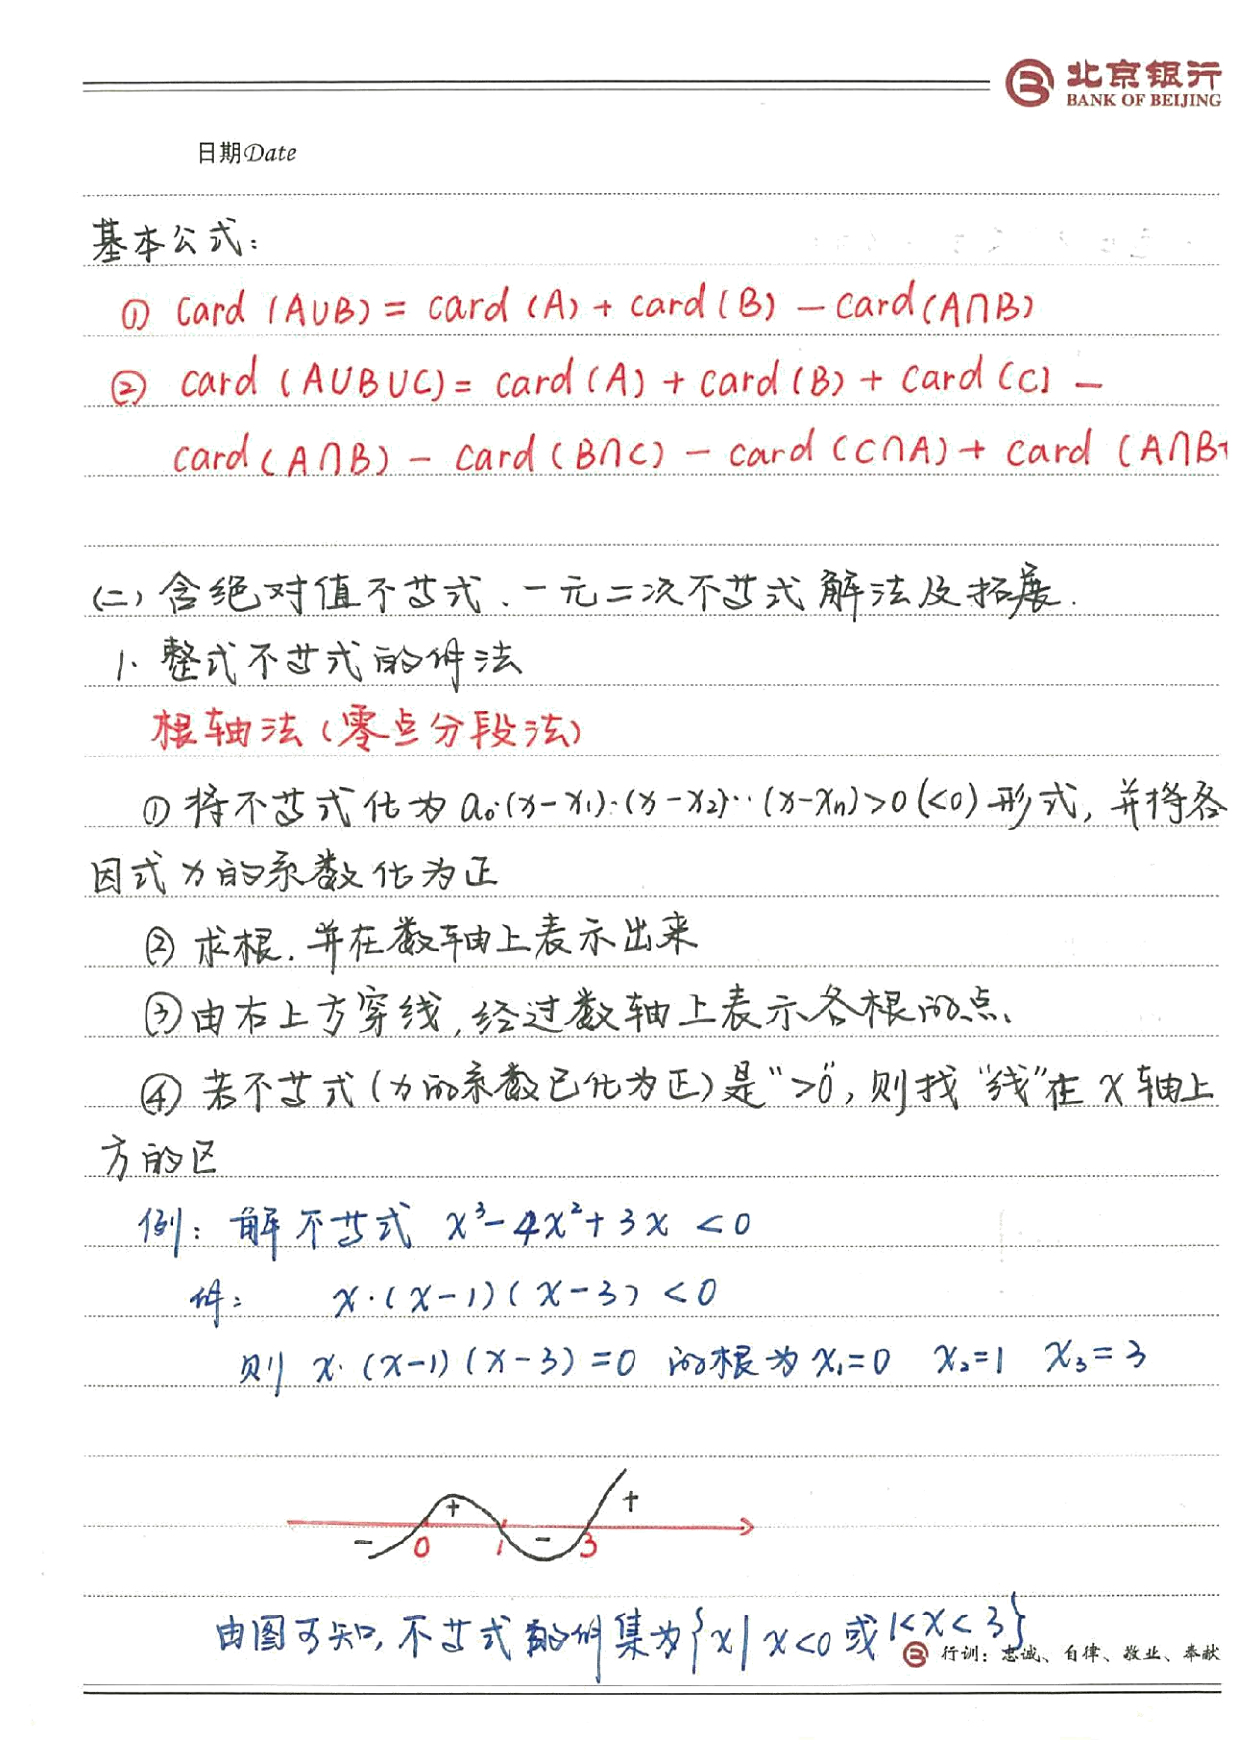 北京银行
BANK OF BEIJING
日期Date
基本公式:
① card (A∪B) = card (A) + card (B) - card (A∩B)
② card (A∪B∪C) = card (A) + card (B) + card (C) -
card (A∩B) - card (B∩C) - card (C∩A) + card (A∩B
(二) 含绝对值不等式、一元二次不等式解法及拓展.
1、整式不等式的解法
根轴法 (零点分段法)
① 将不等式化为 a₀·(x-x₁)·(x-x₂)··(x-xn)>0 (<0) 形式, 并将各
因式x的系数化为正
② 求根. 并在数轴上表示出来
③ 由右上方穿线, 经过数轴上表示各根的点、
④ 若不等式 (x的系数已化为正) 是">0", 则找"线"在x轴上
方的区
例: 解不等式 x³-4x²+3x <0
解: x·(x-1)(x-3) <0
则 x·(x-1)(x-3)=0 的根为 x₁=0 x₂=1 x₃=3
+ +
- 0 1 - 3
由图可知, 不等式的解集为{x| x<0 或 1<x<3}
行训: 忠诚、自律、敬业、奉献